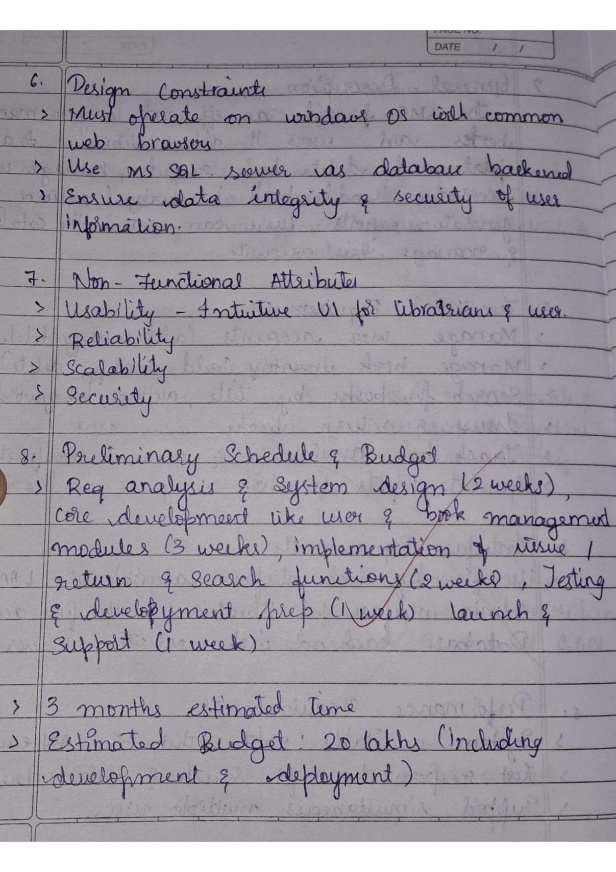 PAGE NO.
DATE / /
6. Design Constraints
> Must operate on windows OS with common
web browsers
> Use MS SQL server as database backened
> Ensure data integrity & security of user
information.
7. Non-Functional Attributes
> Usability - Intuitive UI for librarians & user.
> Reliability
> Scalability
> Security
8. Preliminary Schedule & Budget
> Req analysis & System design (2 weeks),
core development like user & book management
modules (3 weeks), implementation of issue /
return & Search functions (2 weeks), Testing
& developyment prep (1 week) launch &
Support (1 week)
> 3 months estimated time
> Estimated Budget: 20 lakhs (including
development & deployment)